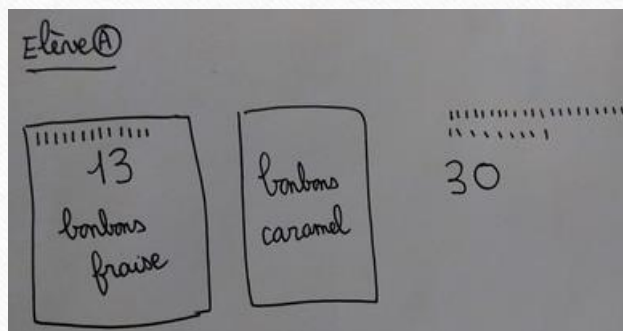 Elève A
13
bonbons
fraise
bonbons
caramel
30